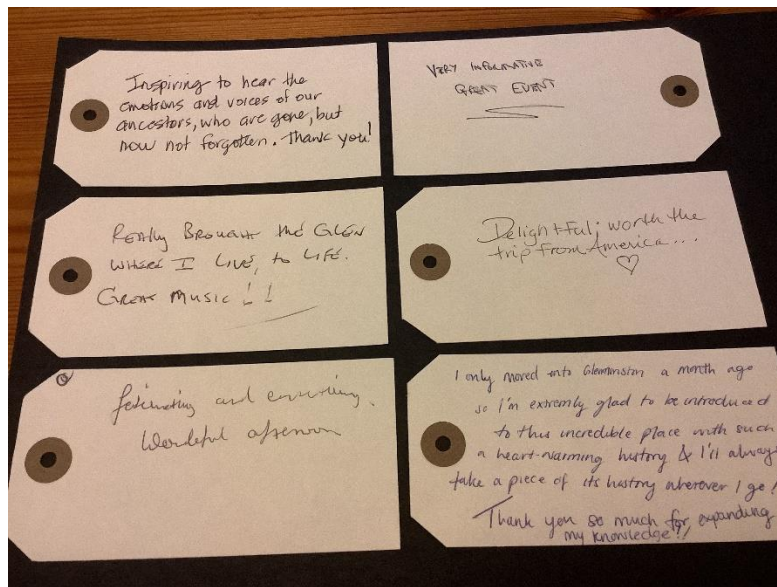 Inspiring to hear the
emotions and voices of our
ancestors, who are gone, but
now not forgotten. Thank you!
VERY INFORMATIVE
GREAT EVENT
REALLY BROUGHT the GLEN
WHERE I LIVE, to LIFE.
GREAT MUSIC !!
Delightful; worth the
trip from America...
♡
and
afternoon
I only moved into a month ago
so I'm extremly glad to be introduced
to this incredible place with such
a heart-warming history & I'll always
take a piece of its history wherever I go!
Thank you so much for expanding
my knowledge!!